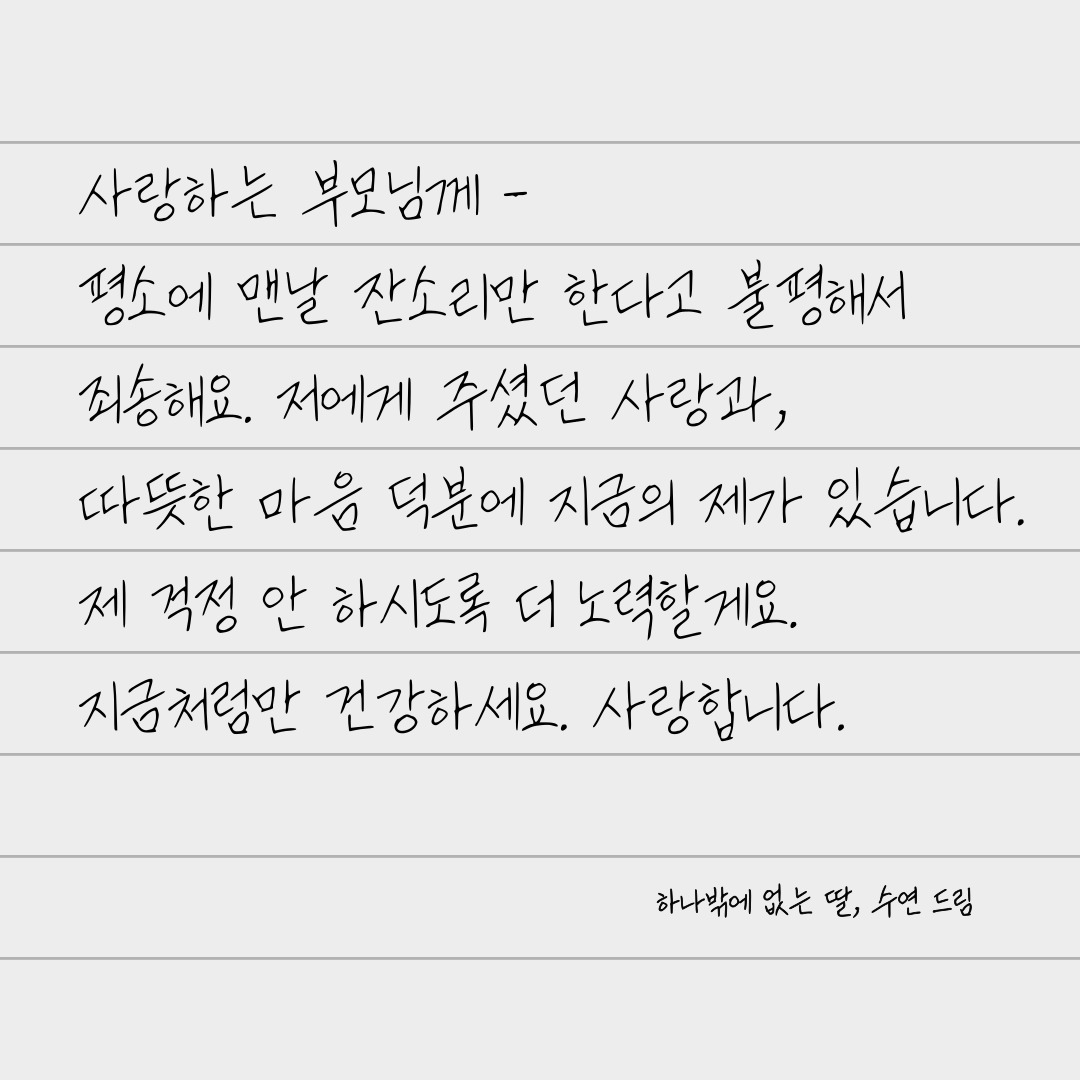 사랑하는 부모님께 -
평소에 맨날 잔소리만 한다고 불평해서
죄송해요. 저에게 주셨던 사랑과,
따뜻한 마음 덕분에 지금의 제가 있습니다.
제 걱정 안 하시도록 더 노력할게요.
지금처럼만 건강하세요. 사랑합니다.
하나밖에 없는 딸, 수연 드림